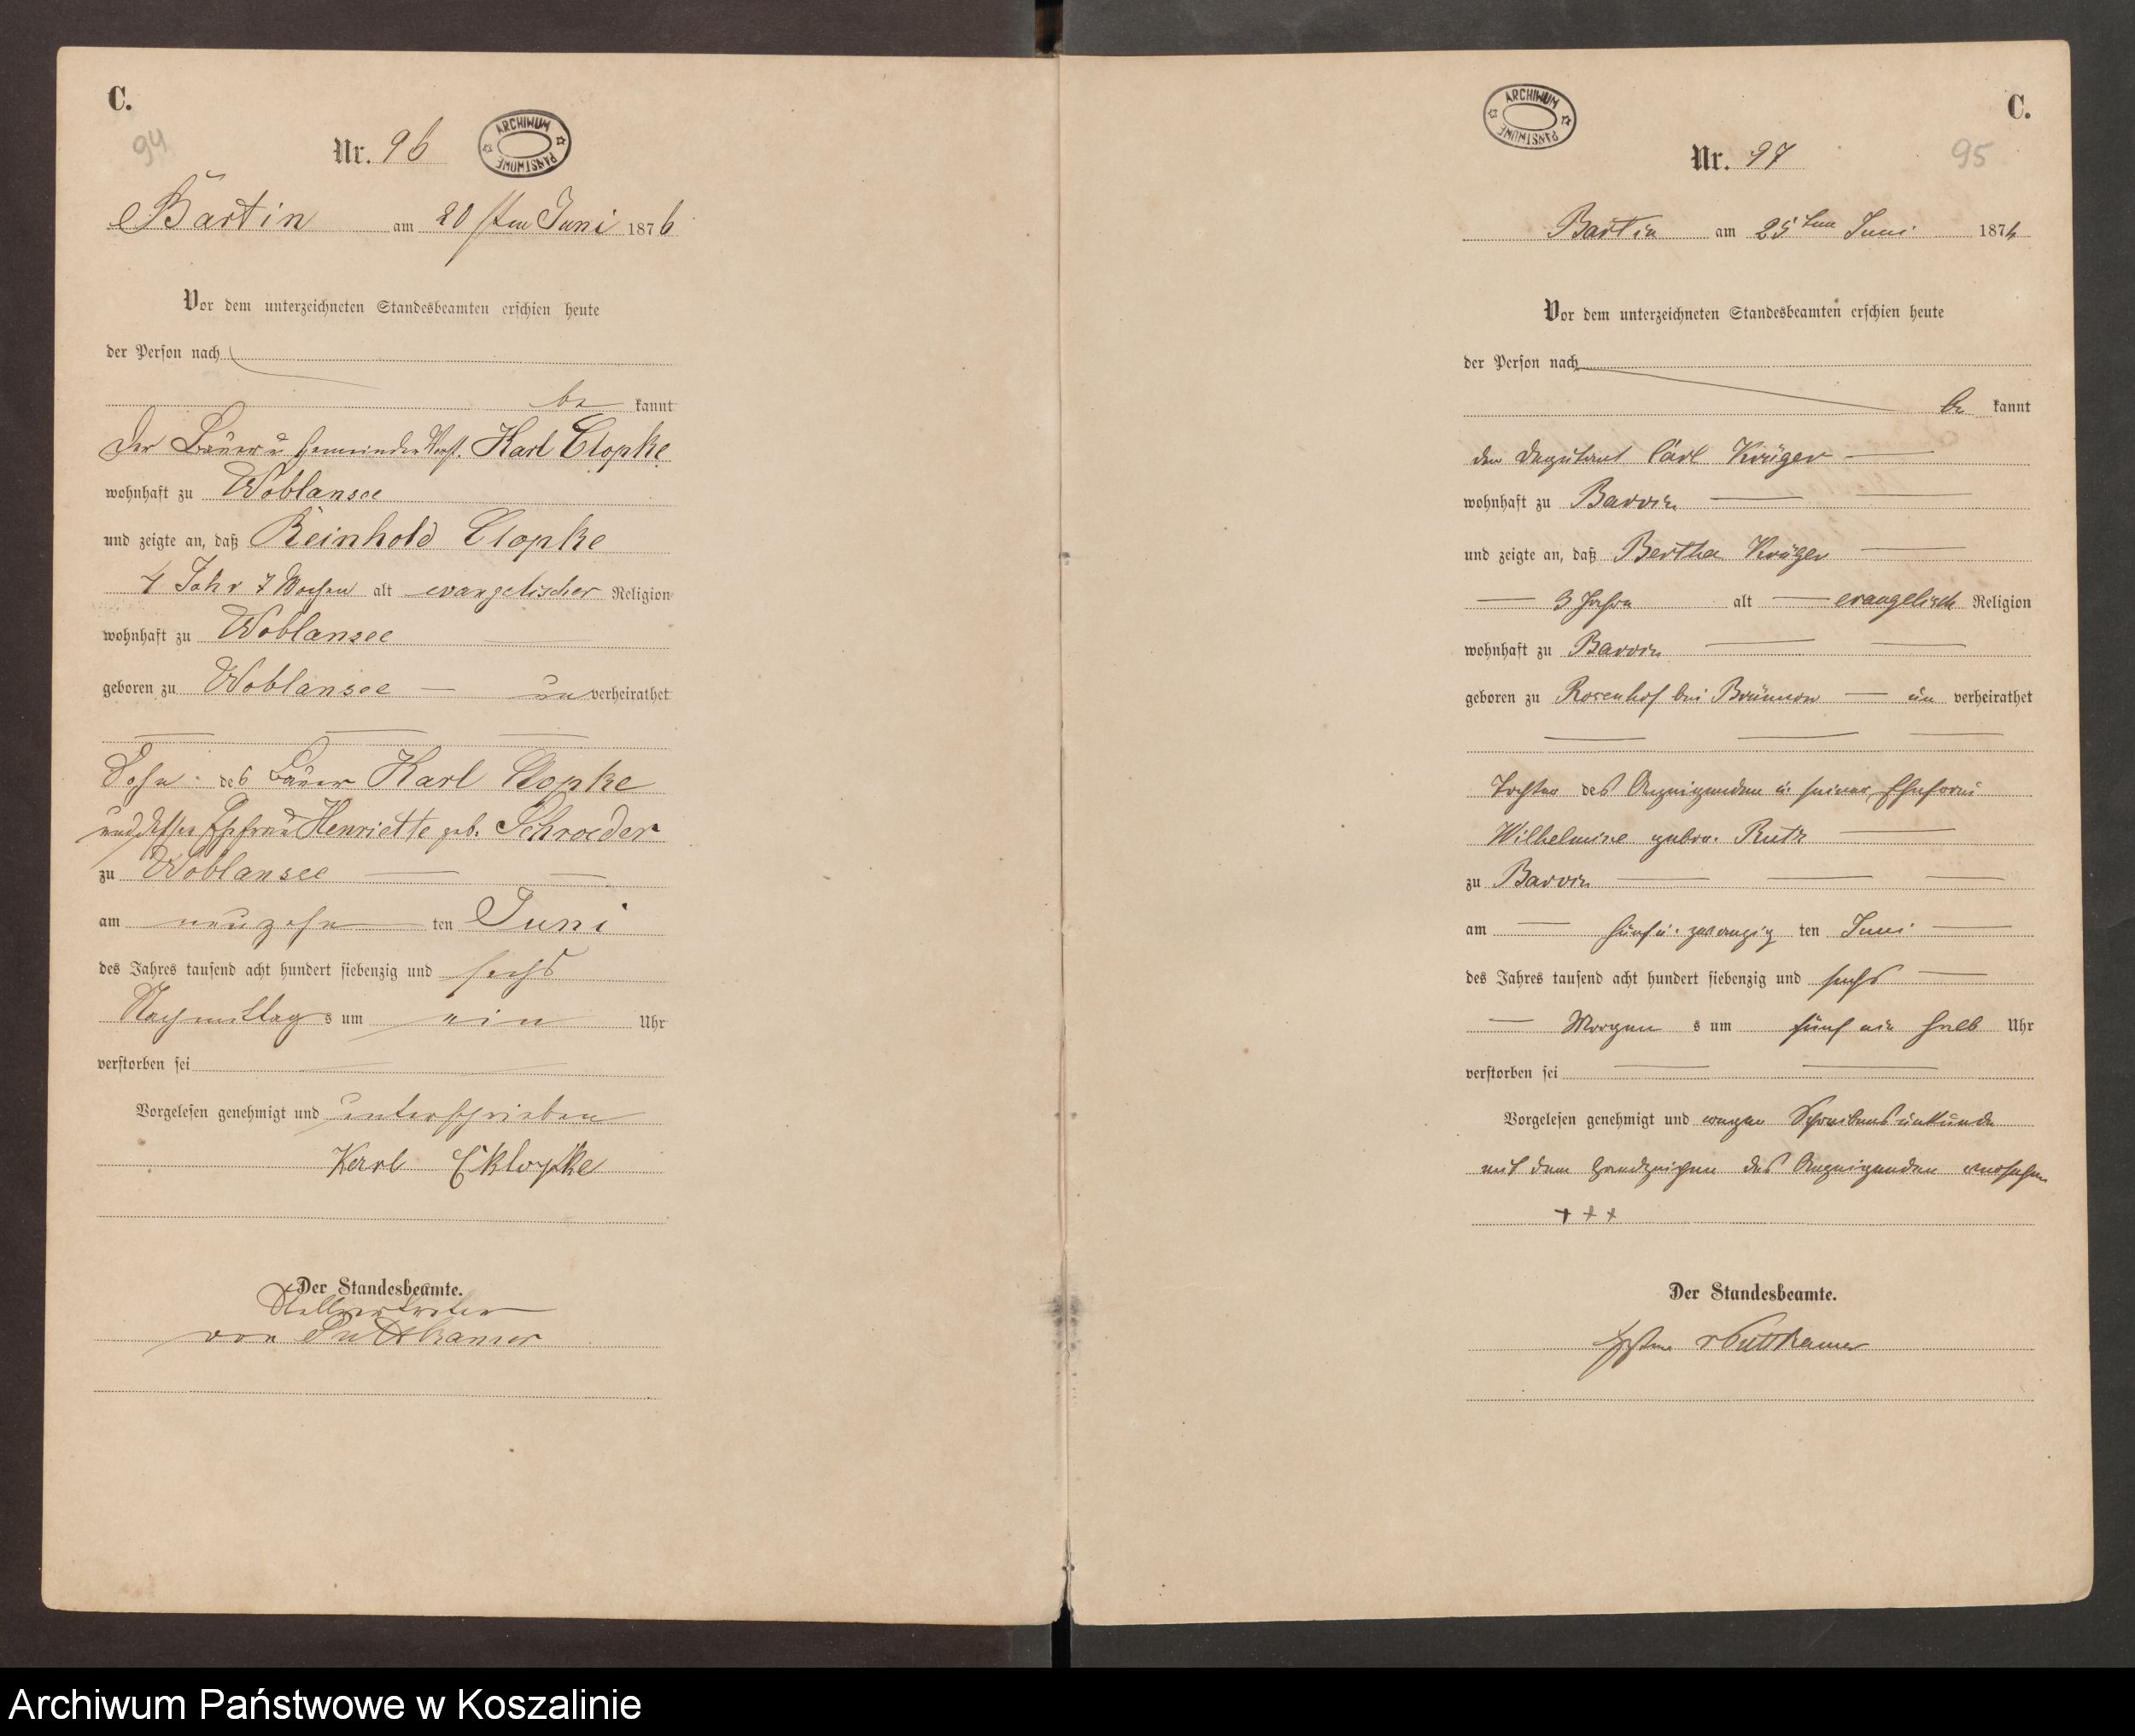 C.
94
Nr. 96
ARCHIWUM PAŃSTWOWE
Bartin am 20sten Juni 1876
Vor dem unterzeichneten Standesbeamten erschien heute
der Person nach
be kannt
Der Bauer u Gemeinde Karl Clopke
wohnhaft zu Woblansee
und zeigte an, daß Reinhold Clopke
Jahr 7 Wochen alt evangelischer Religion
wohnhaft zu Woblansee
geboren zu Woblansee — un verheirathet
Sohn des Bauer Karl Clopke
und dessen Ehefrau Henriette geb. Schroeder
zu Woblansee
am neunzehn ten Juni
des Jahres tausend acht hundert siebenzig und sechs
Nachmittag s um ein Uhr
verstorben sei
Vorgelesen genehmigt und unterschrieben
Karl Cklopke
Der Standesbeamte.
Stellvertreter
von Puttkamer
C.
95
ARCHIWUM PAŃSTWOWE
Nr. 97
Bartin am 25ten Juni 1876
Vor dem unterzeichneten Standesbeamten erschien heute
der Person nach
be kannt
der Deputant Carl Krüger
wohnhaft zu Barvin
und zeigte an, daß Bertha Krüger
3 Jahre alt evangelisch Religion
wohnhaft zu Barvin
geboren zu Rosenhof bei Brünnow — un verheirathet
Tochter des Anzeigenden u. seiner Ehefrau
Wilhelmine gebor. Rutz
zu Barvin
am fünf u. zwanzig ten Juni
des Jahres tausend acht hundert siebenzig und sechs
Morgen s um fünf ein halb Uhr
verstorben sei
Vorgelesen genehmigt und wegen Schreibensunkunde
mit dem Handzeichen des Anzeigenden versehen
+++
Der Standesbeamte.
v Puttkamer
Archiwum Państwowe w Koszalinie